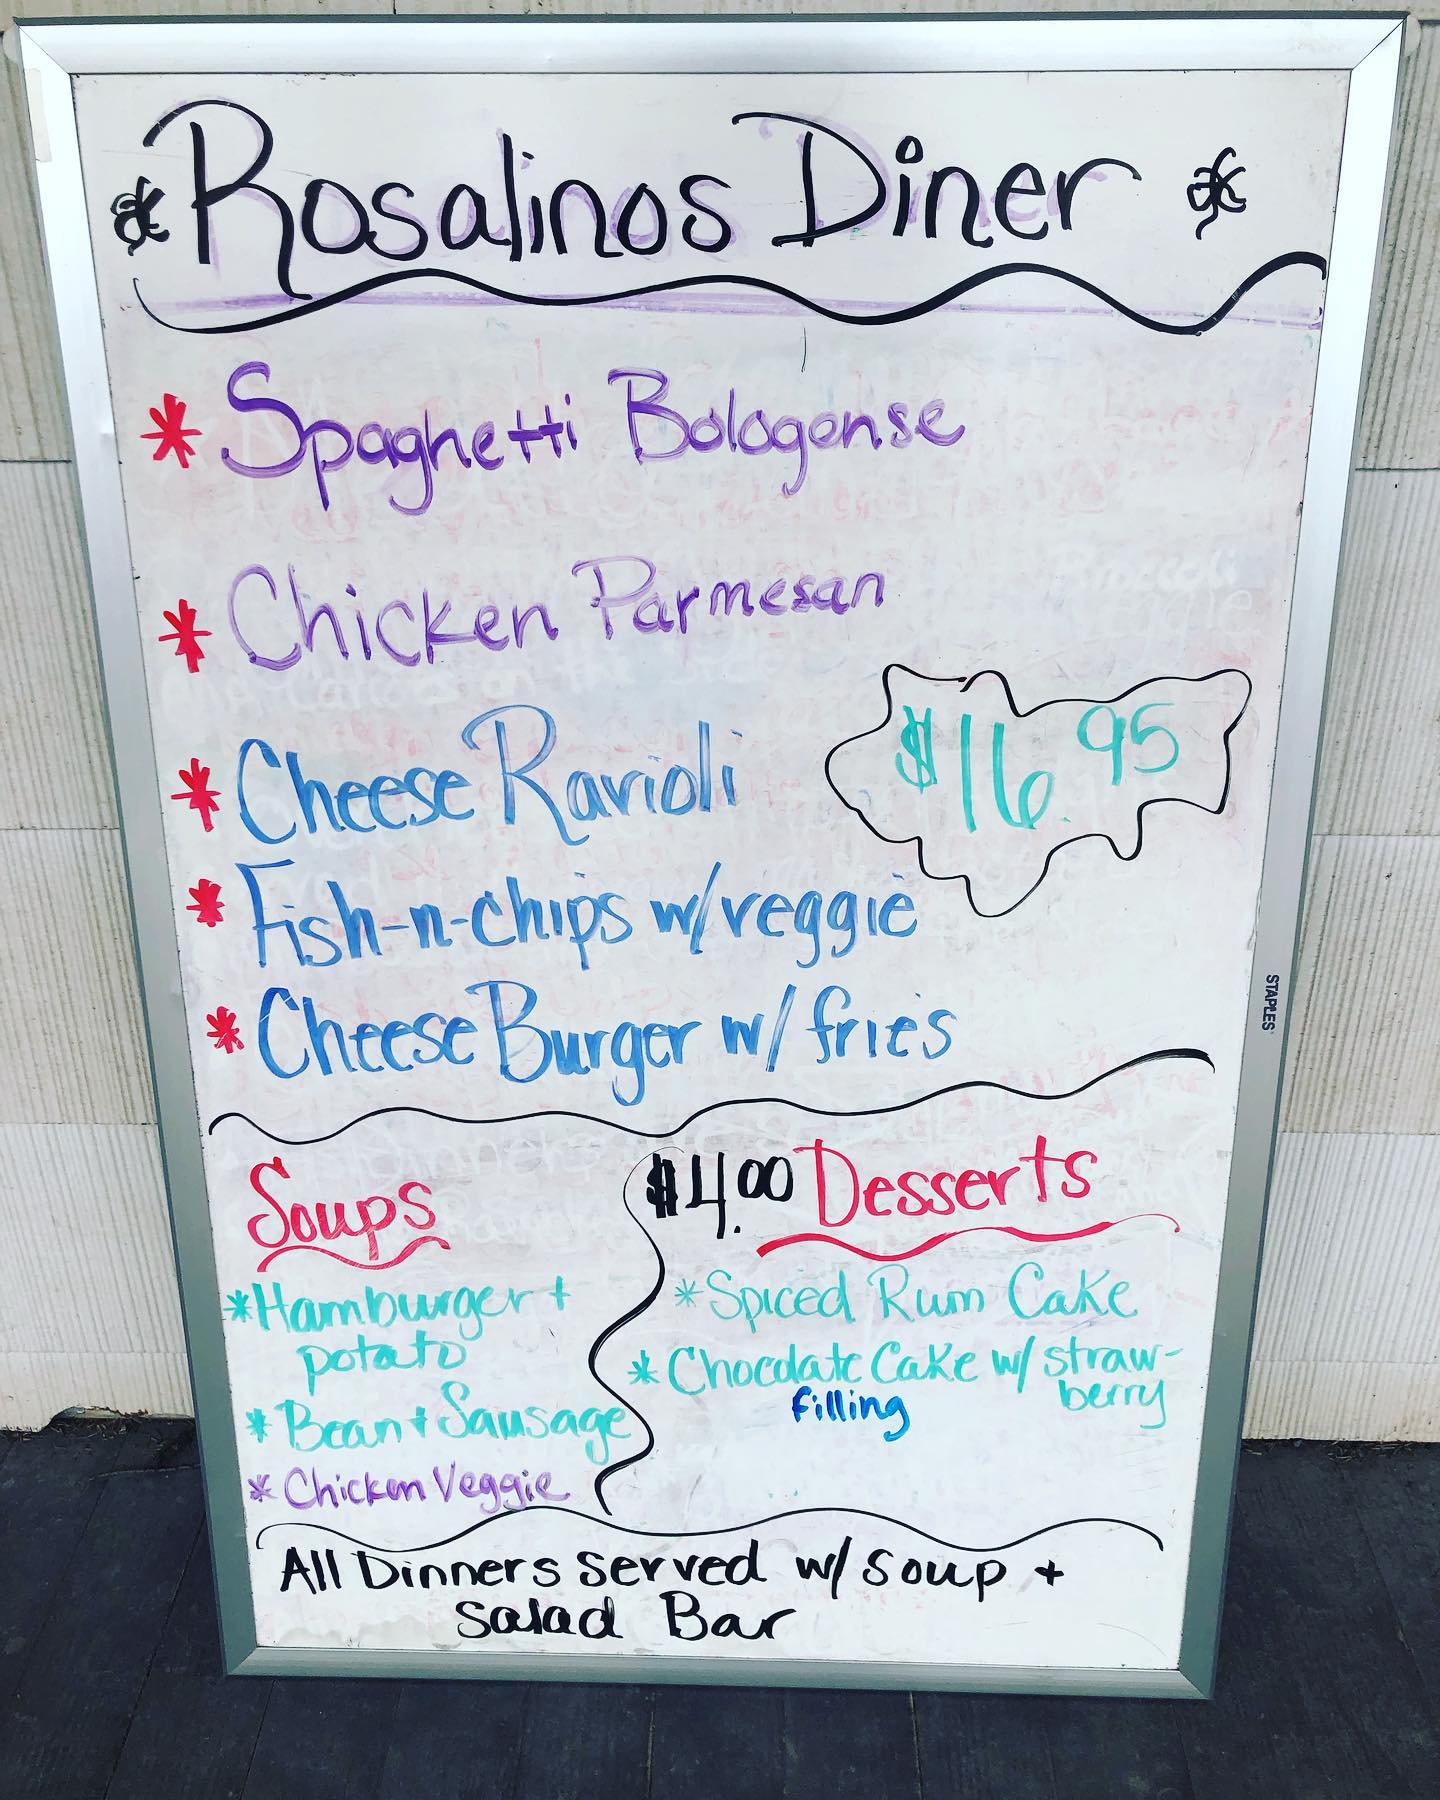 Rosalinos Diner
* Spaghetti Bologonse
* Chicken Parmesan
* Cheese Ravioli
$16.95
* Fish-n-chips w/veggie
* Cheese Burger w/ fries
STAPLES
Soups
*Hamburger +
potato
* Bean + Sausage
* Chicken Veggie
$4.00 Desserts
*Spiced Rum Cake
* Chocolate Cake w/ straw-
berry
filling
All Dinners served w/ soup +
salad Bar